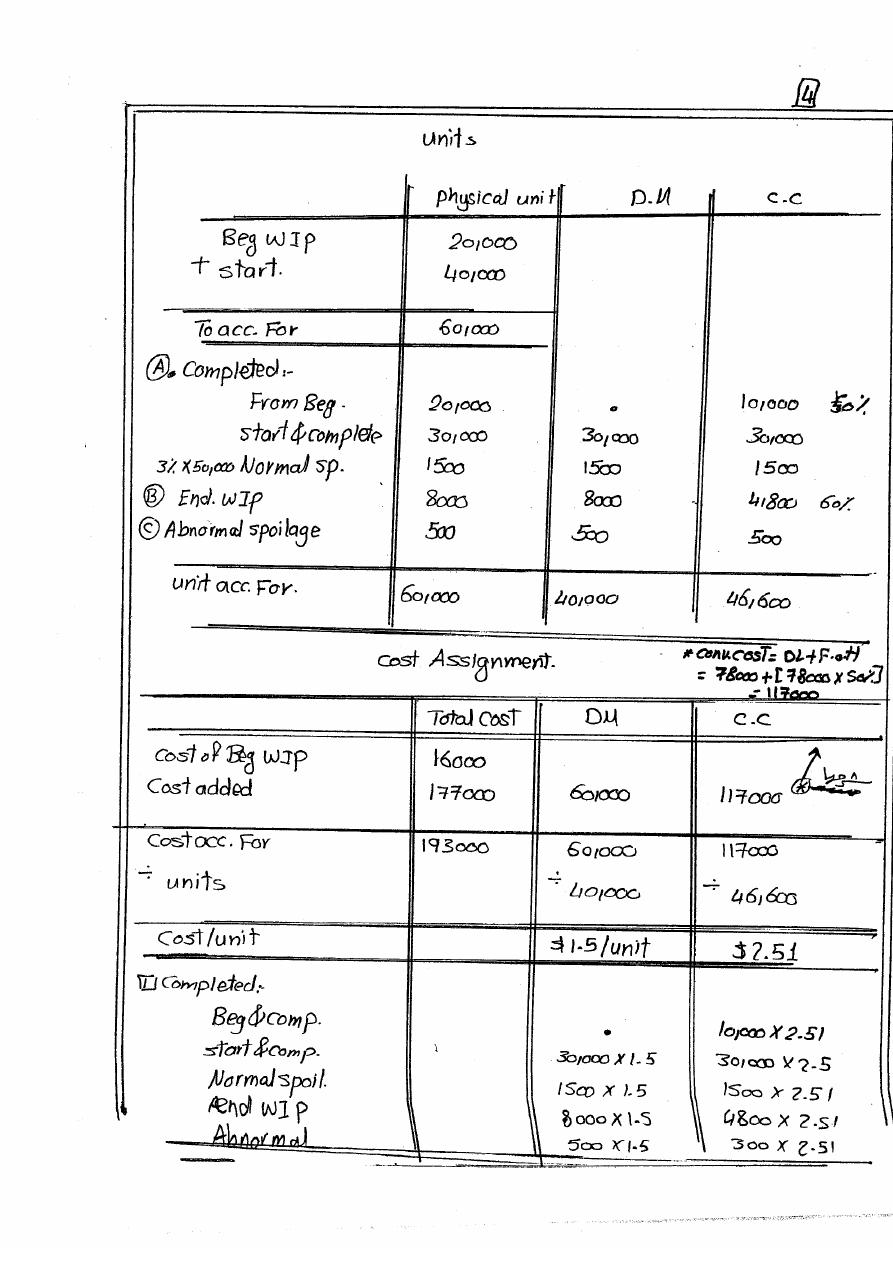 4
Units
Physical unit D.M C.C
Beg WIP 20,000
+ start. 40,000
To acc. For 60,000
(A). Completed:-
From Beg. 20,000 . 10,000 50%
start & complete 30,000 30,000 30,000
3% x 50,000 Normal sp. 1500 1500 1500
(B) End. WIP 8000 8000 4,800 60%
(C) Abnormal spoilage 500 500 500
unit acc. For. 60,000 40,000 46,600
Cost Assignment.
* Conv. Cost = DL + F.OH
= 78000 + [78000 x 50%]
= 117000
Total Cost DM C.C
Cost of Beg WIP 16000
Cost added 177000 60,000 117000
Cost acc. For 193000 60,000 117000
÷ units ÷ 40,000 ÷ 46,600
Cost/unit $1.5/unit $2.51
[1] Completed:-
Beg & comp. . 10,000 X 2.51
start & comp. 30,000 X 1.5 30,000 X 2.5
Normal spoil. 1500 X 1.5 1500 X 2.51
end WIP 8000 X 1.5 4800 X 2.51
Abnormal 500 X 1.5 300 X 2.51